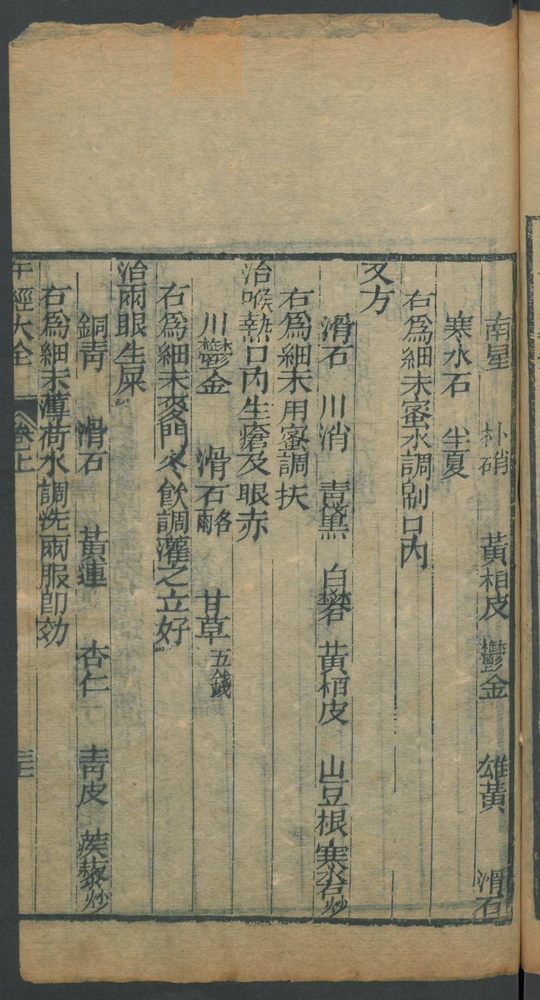 南星 朴硝 黃栢皮 鬱金 雄黃 滑石
寒水石 半夏
右爲細末蜜水調刷口內
又方
滑石 川消 靑黛 白礬 黃栢皮 山豆根 寒水石炒
右爲細末用蜜調抹
治喉熱口內生瘡及眼赤
川鬱金 滑石各兩 甘草五錢
右爲細末麥門冬飲調灌之立好
治兩眼生屎
銅靑 滑石 黃連 杏仁 靑皮 蒺藜炒
右爲細末薄荷水調洗兩服即効
牛經大全 卷上